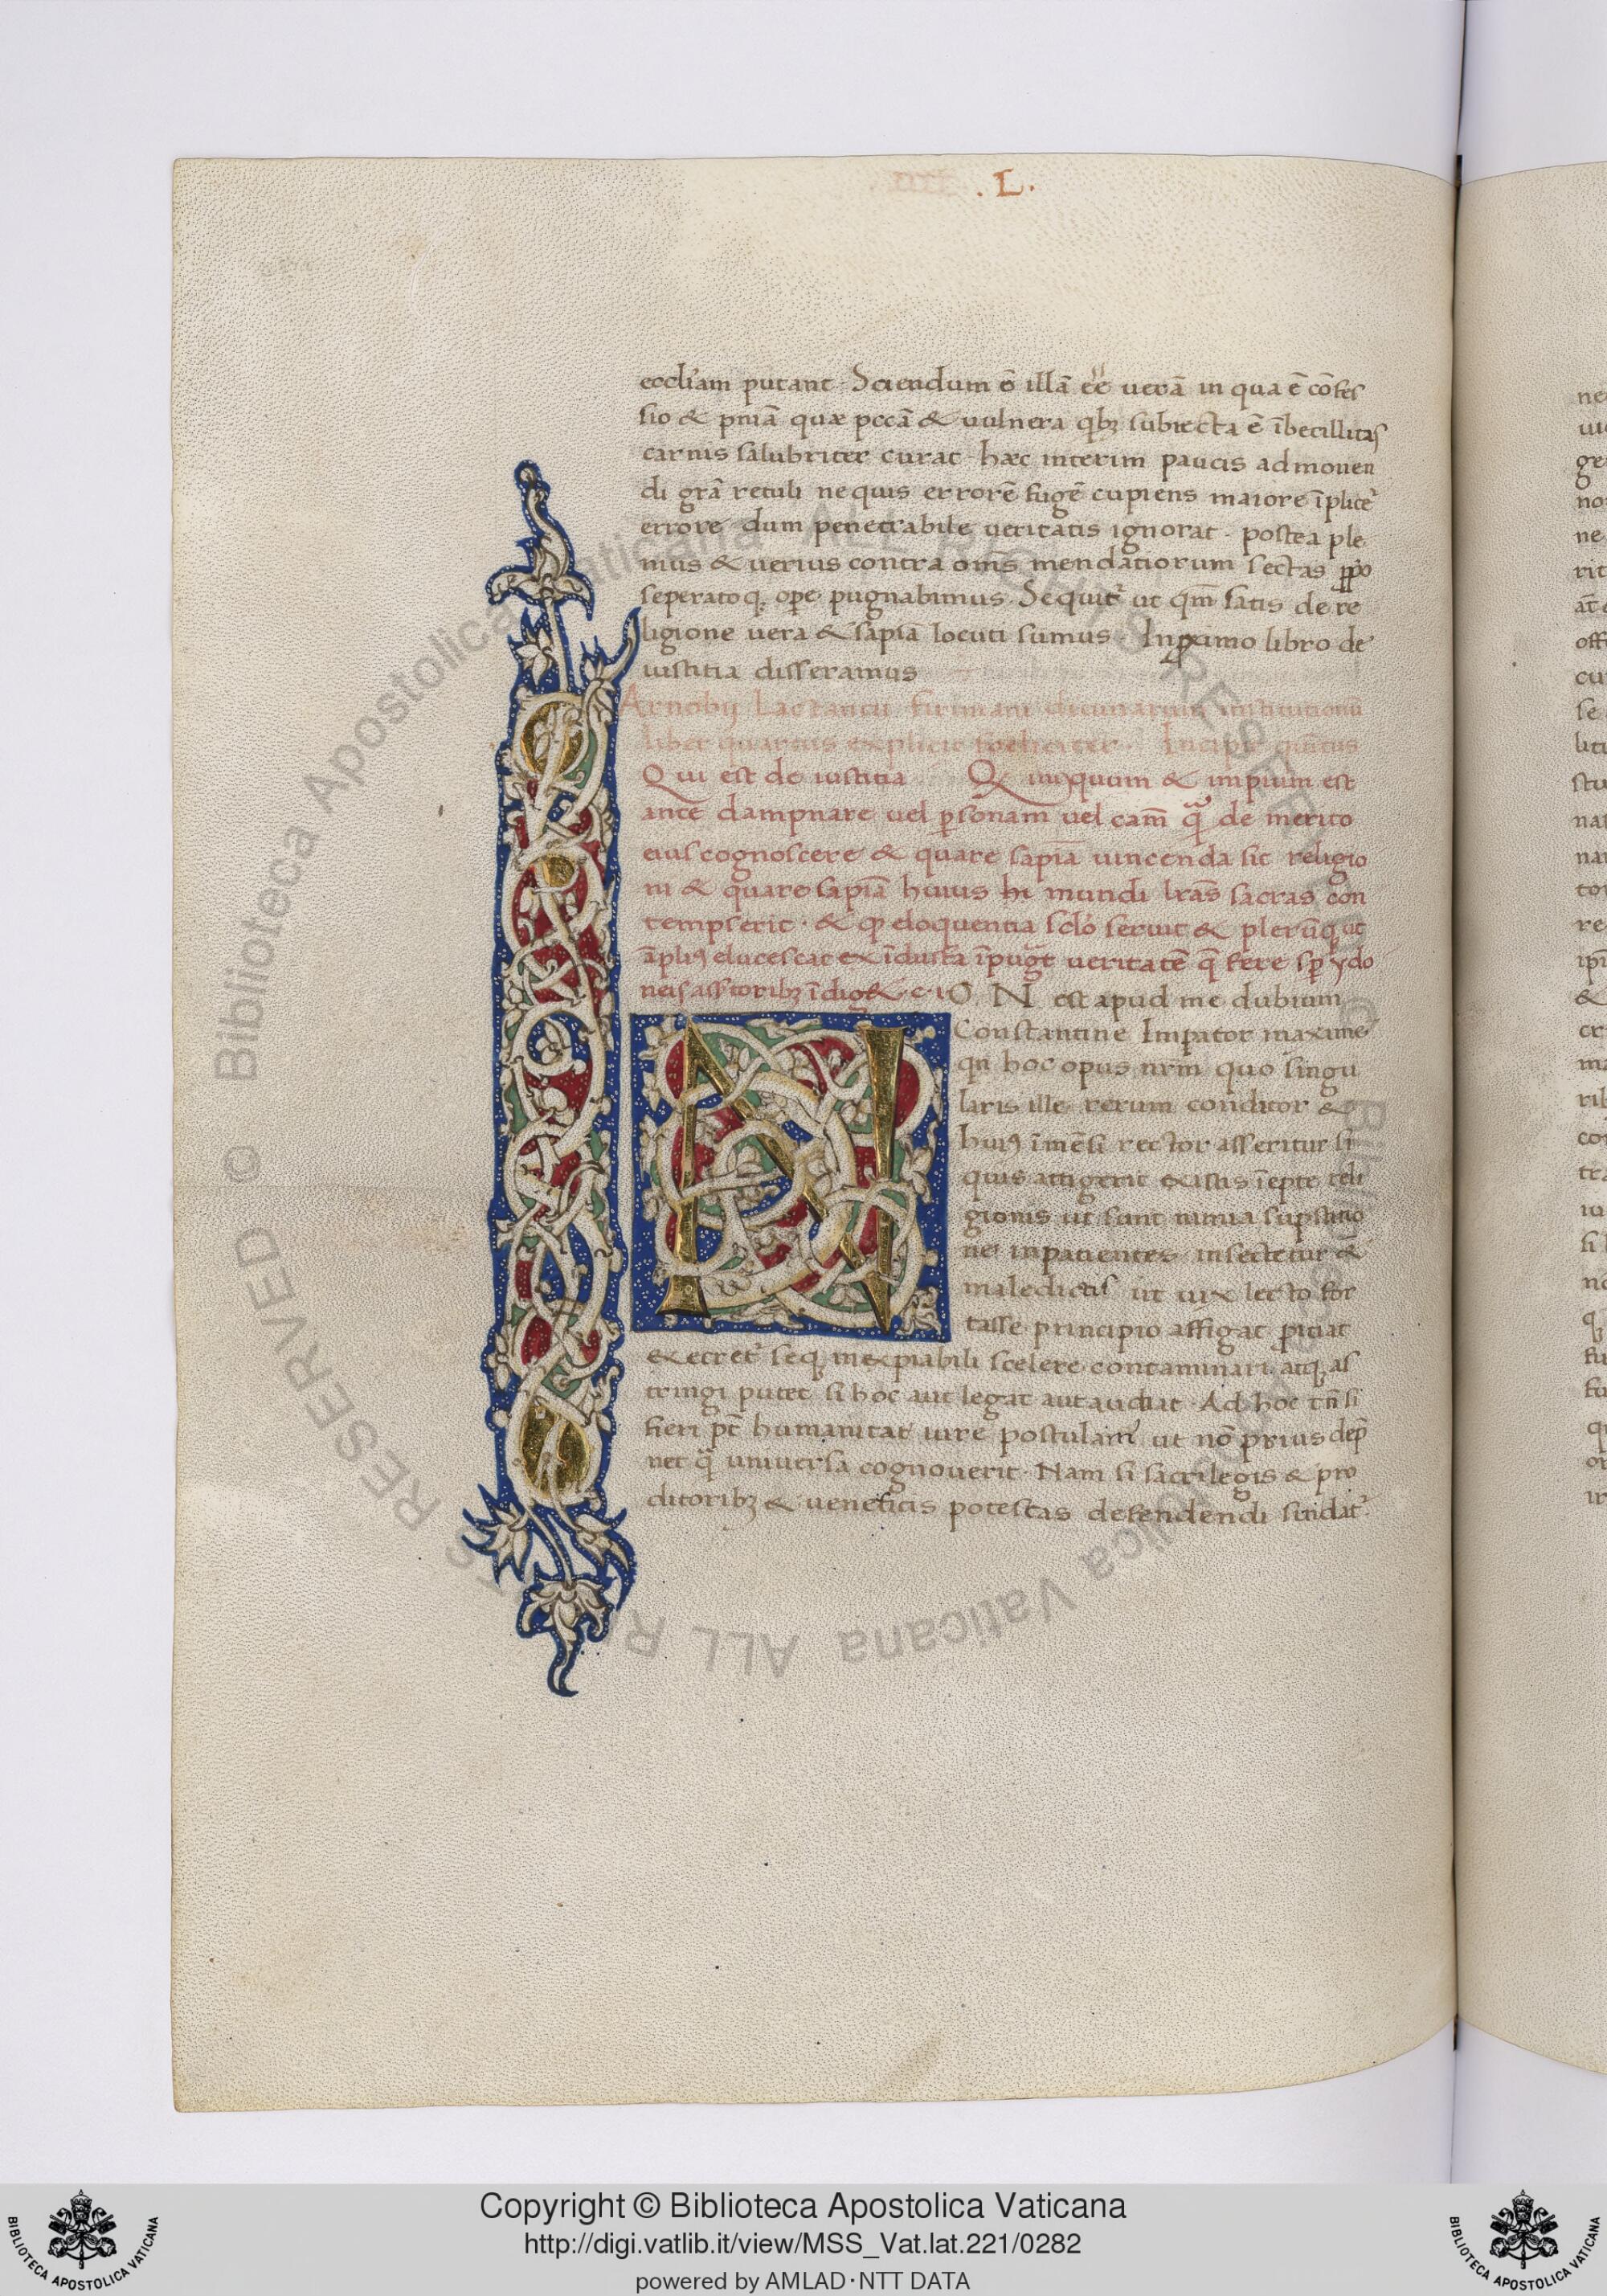 . L .
eccl'iam putant · Sciendum ē illā eē uerā in qua ē cōfes
sio & pniā quæ pccā & uulnera qbꝫ subiecta ē ībecillitas
carnis salubriter curat · hæc interim paucis admonen
di grā retuli ne quis errorē fugē cupiens maiore īplicet̄
errore dum penetrabile ueritatis ignorat · postea ple
nius & uerius contra oms̄ mendatiorum sectas ꝓpo
seperatoqꝫ ope pugnabimus · Sequit̄ ut qm̄ satis de re
ligione uera & sapīa locuti sumus · In ꝓximo libro de
iustitia disseramus
Arnobij Lactantii firmiani diuinarum institutionū
liber quartus explicit foeliciter · Incipit quintus
Qui est de iustitia Qꝫ iniꝗuum & impium est
ante dampnare uel ꝑsonam uel cam̄ qᷓ de merito
eius cognoscere & quare sapīa uincenda sit religio
ni & quare sapīa huius hi mundi lrās sacras con
tempserit · & ꝙ eloquentia sclo seruit & plerūqꝫ ut
āpliꝰ elucescat ex īdustā īpugt̄ ueritatē q̄ fere sꝑ ydo
neis assꝑtoribꝫ īdiget · c · i O N est apud me dubium
Constantine Imꝑator maxime
qn hoc opus nrm̄ quo singu
laris ille rerum conditor &
huiꝰ īmēsi rector asseritur si
quis attigerit ex istis īepte reli
gionis ut sunt nimia suꝑstitio
ne inpatientes insectetur &
maledictis ut uix lecto for
tasse principio affigat ꝓiciat
execret̄ seqꝫ inexpiabili scelere contaminari atqꝫ as
tringi putet si hoc aut legat aut audiat · Ad hoc tn̄ si
fieri pt̄ humanitat iure postulam̄ ut nō prius dep̄
net qᷓ uniuersa cognouerit · Nam si sacrilegis & pro
ditoribꝫ & ueneficis potestas defendendi sui dat̄ ·
© Biblioteca Apostolica Vaticana ALL RIGHTS RESERVED
Copyright © Biblioteca Apostolica Vaticana
http://digi.vatlib.it/view/MSS_Vat.lat.221/0282
powered by AMLAD·NTT DATA
BIBLIOTECA APOSTOLICA VATICANA
BIBLIOTECA APOSTOLICA VATICANA